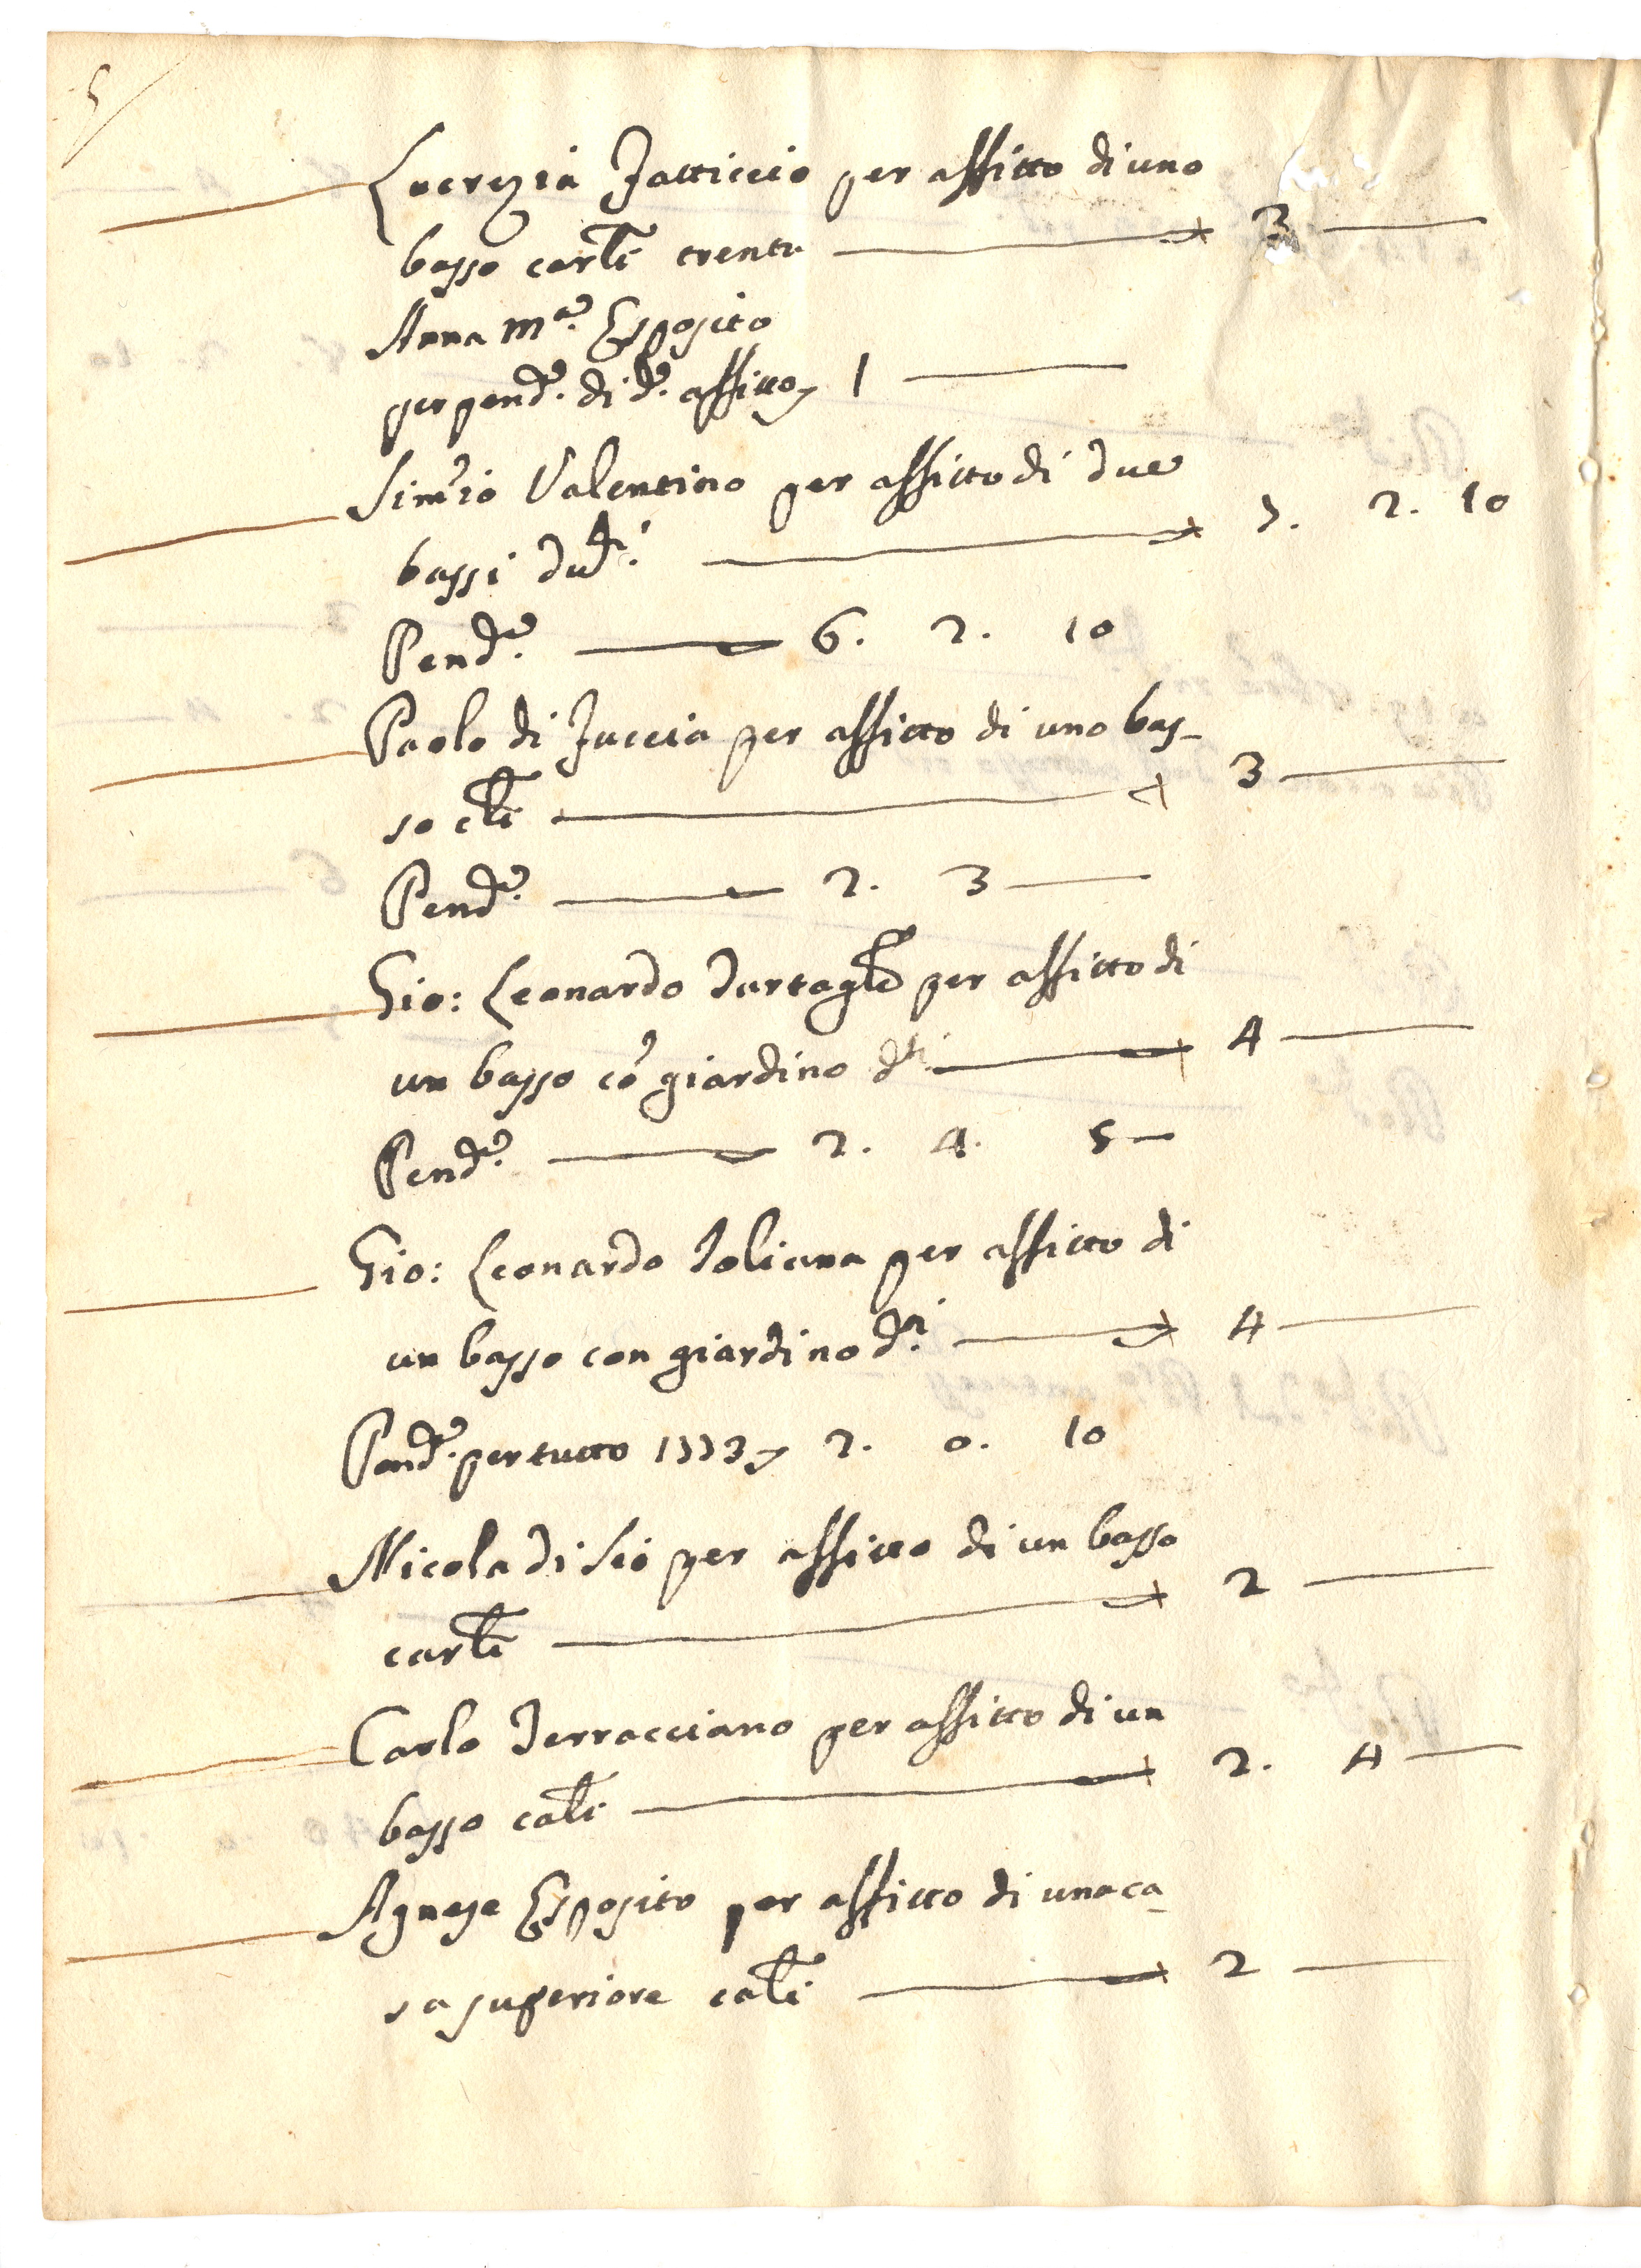 5
Lucrezia Jatticcio per affitto di uno
basso carli trenta 3
Anna Ma. Esposito
per pende. di do. affitto 1
Simio Valentino per affitto di due
bassi duci. 7. 2. 10
Pende. 6. 2. 10
Paolo di Juccia per affitto di uno bas-
so cli 3
Pende. 2. 3
Gio: Leonardo Tartaglo per affitto di
un basso co giardino dti 4
Pende. 2. 4. 5
Gio: Leonardo Toliana per affitto di
un basso con giardino di. 4
Pende. per tutto 1773 2. 0. 10
Nicola di Scio per affitto di un basso
carli 2
Carlo Terracciano per affitto di un
basso cali 2. 4
Agnese Esposito per affitto di una ca-
sa superiore cali 2